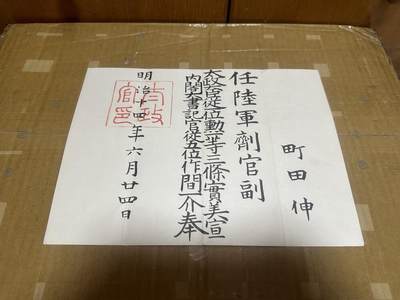 町田伸
任陸軍劑官副
太政大臣從一位勲一等三條實美宣
内閣大書記官從五位作間一介奉
明治十四年六月廿四日
太政官印